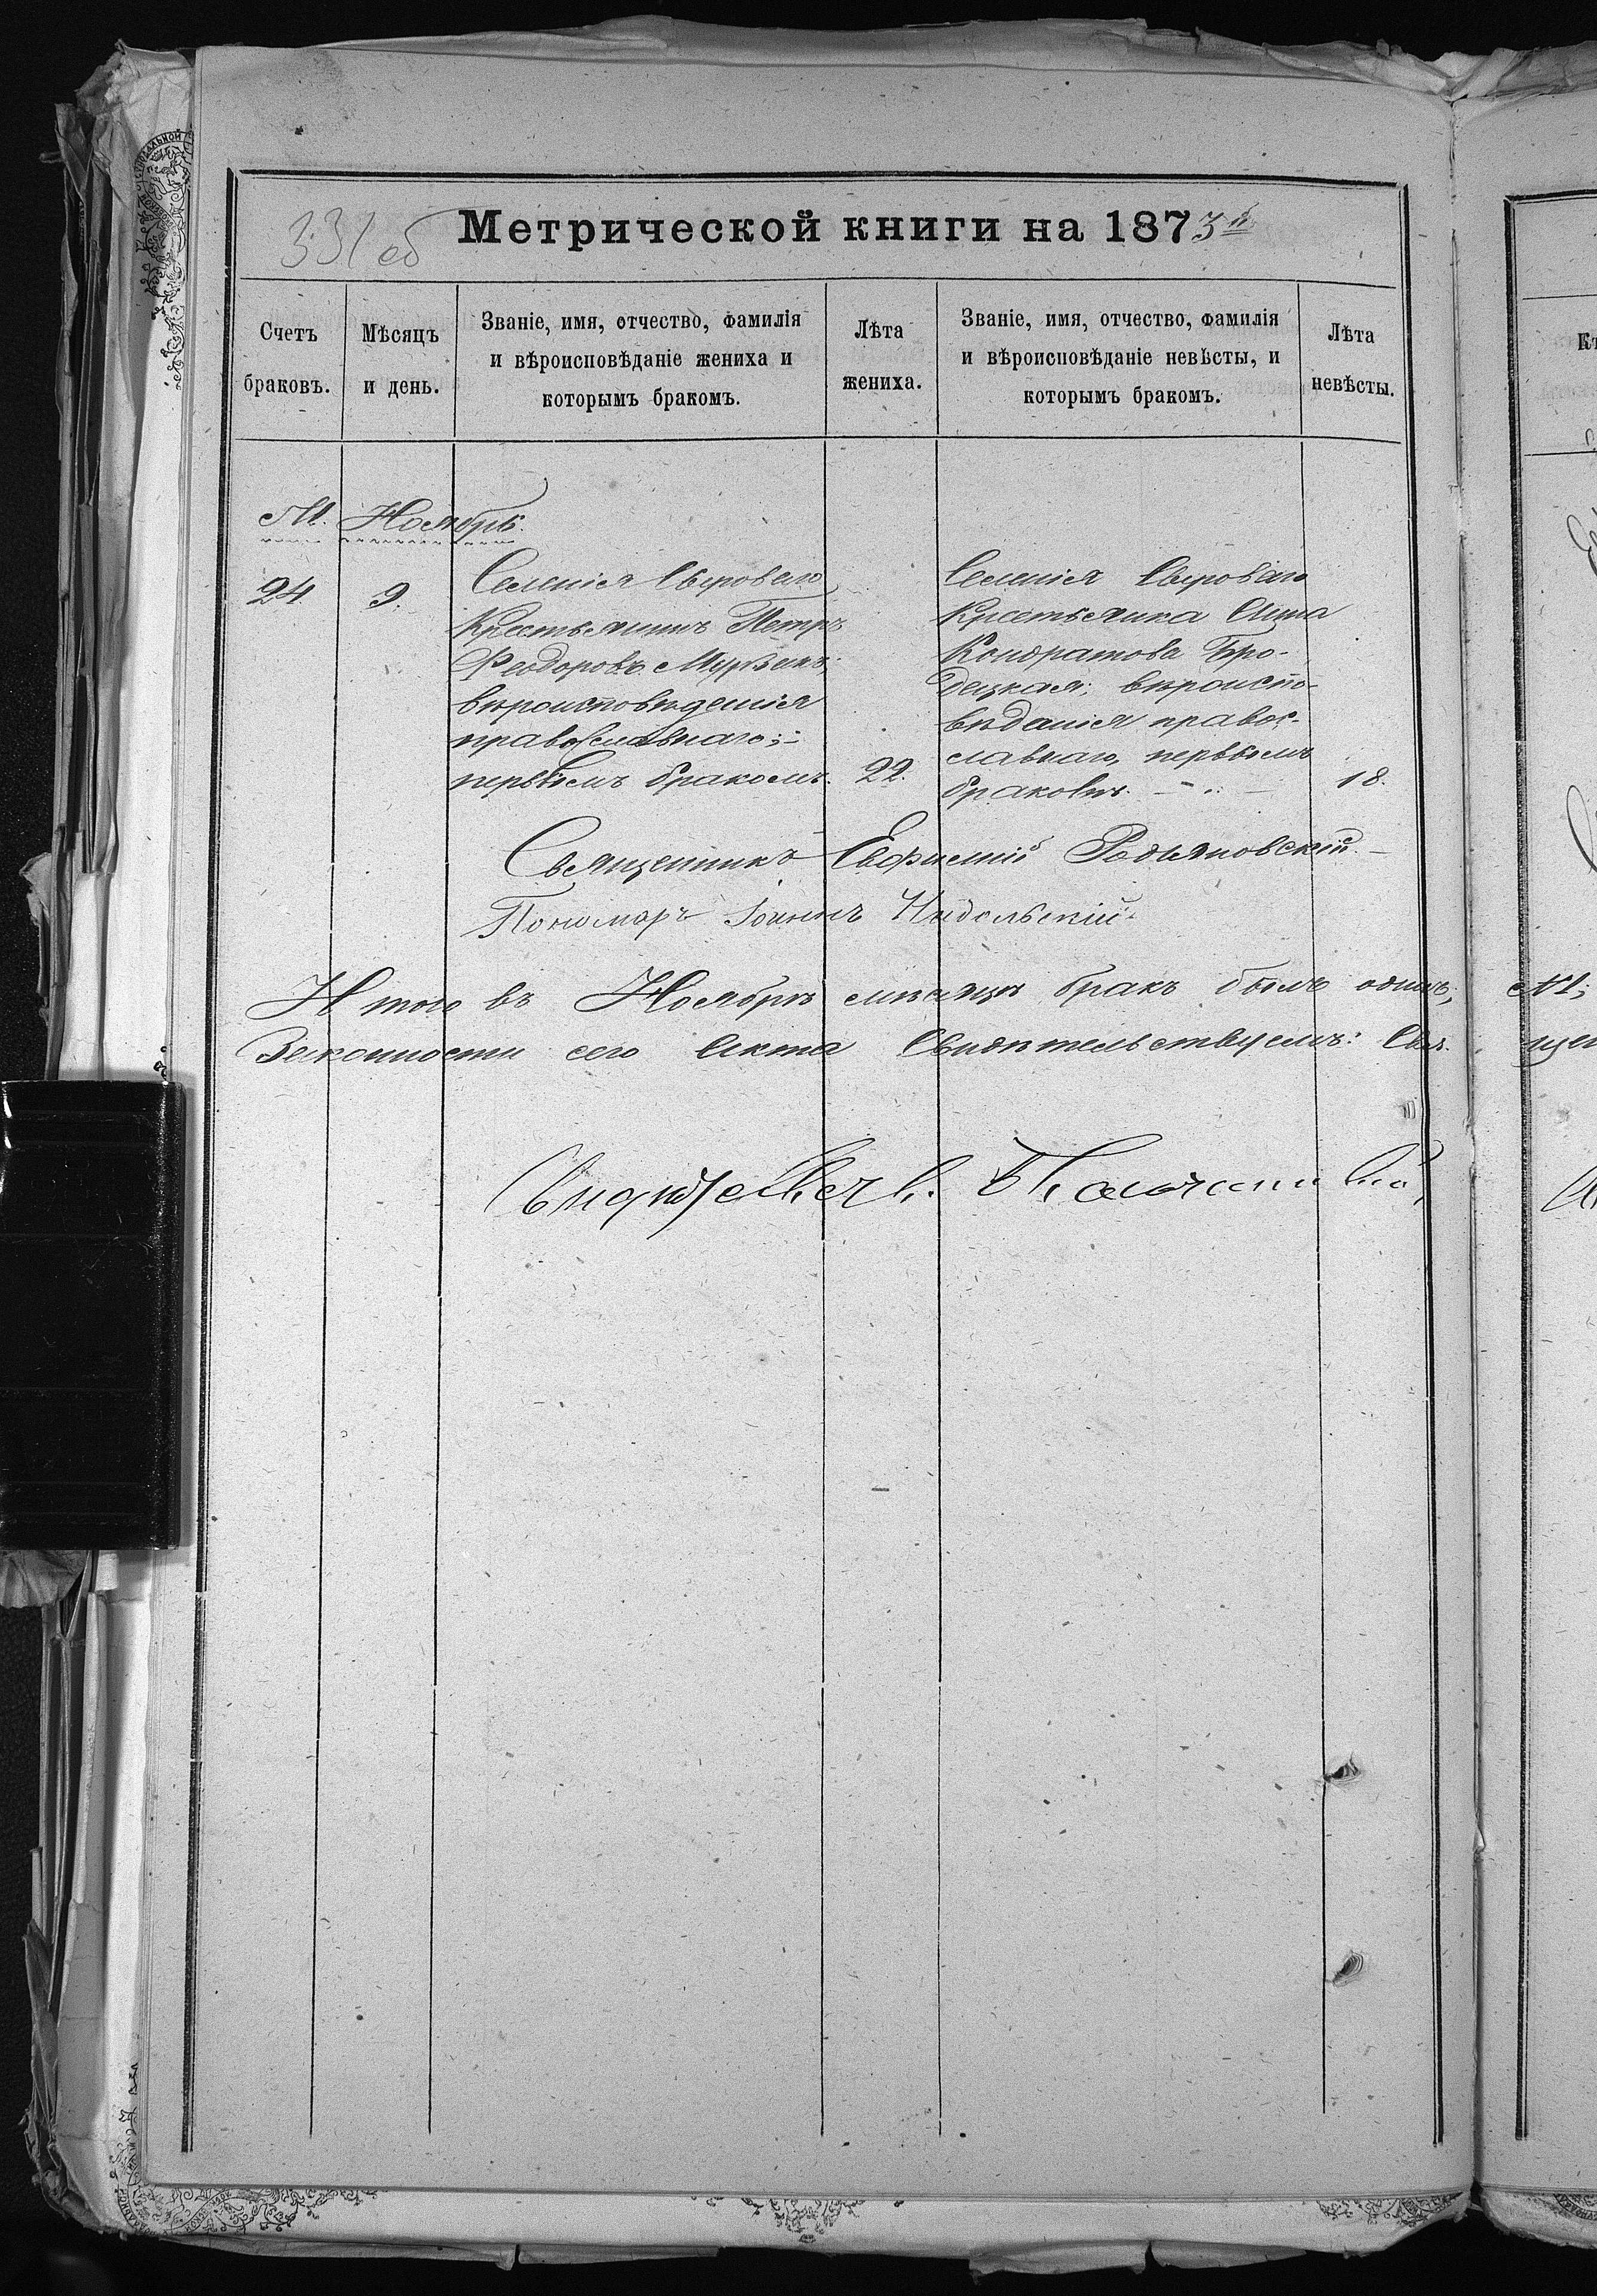 331 об
Метрической книги на 1873й
Счетъ
браковъ.
Мѣсяцъ
и день.
Званіе, имя, отчество, фамилія
и вѣроисповѣданіе жениха и
которымъ бракомъ.
Лѣта
жениха.
Званіе, имя, отчество, фамилія
и вѣроисповѣданіе невѣсты, и
которымъ бракомъ.
Лѣта
невѣсты.
М. Ноябрь.
24. 9.
Селенія Сыроваго
Крестьянинъ Петръ
Феодоровъ
вѣроисповѣденія
православнаго;
первымъ бракомъ. 22.
Селенія Сыроваго
Крестьянка Анна
Кондратова Бро-
децкая; вѣроиспо-
вѣданія правос-
славнаго, первымъ
бракомъ. 18.
Священникъ Евфимій
Пономарь Іоаннъ
Итого въ Ноябрѣ мѣсяцѣ бракъ былъ одинъ, №1;
Законности сего Акта Свидѣтельствуемъ: Свя-